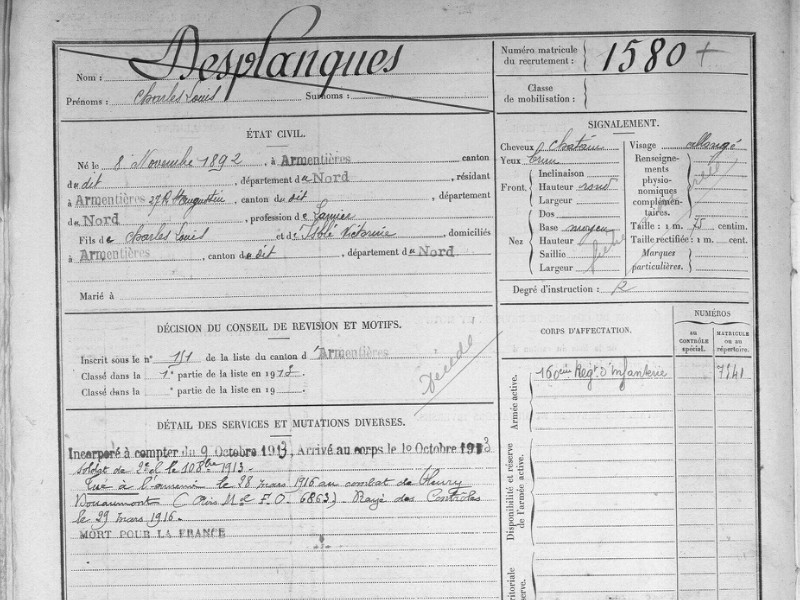 Nom : Desplanques
Prénoms : Charles Louis Surnoms :
Numéro matricule du recrutement : 1580 +
Classe de mobilisation :
ÉTAT CIVIL.
Né le 8 Novembre 1892, à Armentières canton
du dit, département du Nord, résidant
à Armentières 27 R. St Augustin, canton du dit, département
du Nord, profession de Lainier
Fils de Charles Louis et de Isblé Victorine, domiciliés
à Armentières, canton du dit, département du Nord
Marié à
SIGNALEMENT.
Cheveux Chatain Visage allongé
Yeux
Front. Inclinaison
Hauteur rond
Largeur
Nez Dos
Base moyen
Hauteur
Saillie
Largeur
Renseignements physionomiques complémentaires.
Taille : 1 m. 75 centim.
Taille rectifiée : 1 m. cent.
Marques particulières.
Degré d'instruction :
DÉCISION DU CONSEIL DE REVISION ET MOTIFS.
Inscrit sous le n° 151 de la liste du canton d'Armentières
Classé dans la 1e partie de la liste en 1912
Classé dans la e partie de la liste en 19
Décédé
DÉTAIL DES SERVICES ET MUTATIONS DIVERSES.
Incorporé à compter du 9 Octobre 1913, Arrivé au corps le 10 Octobre 1913
Soldat de 2e cl le 10 8bre 1913.
Tué à l'ennemi le 28 mars 1916 au combat de Fleury
Douaumont (Avis M el F.O. 6863). Rayé des Contrôles
le 29 mars 1916.
MORT POUR LA FRANCE
CORPS D'AFFECTATION.
NUMÉROS
AU CONTRÔLE spécial.
MATRICULE OU AU répertoire.
Armée active.
160ème Régt d'Infanterie 7141
Disponibilité et réserve de l'armée active.